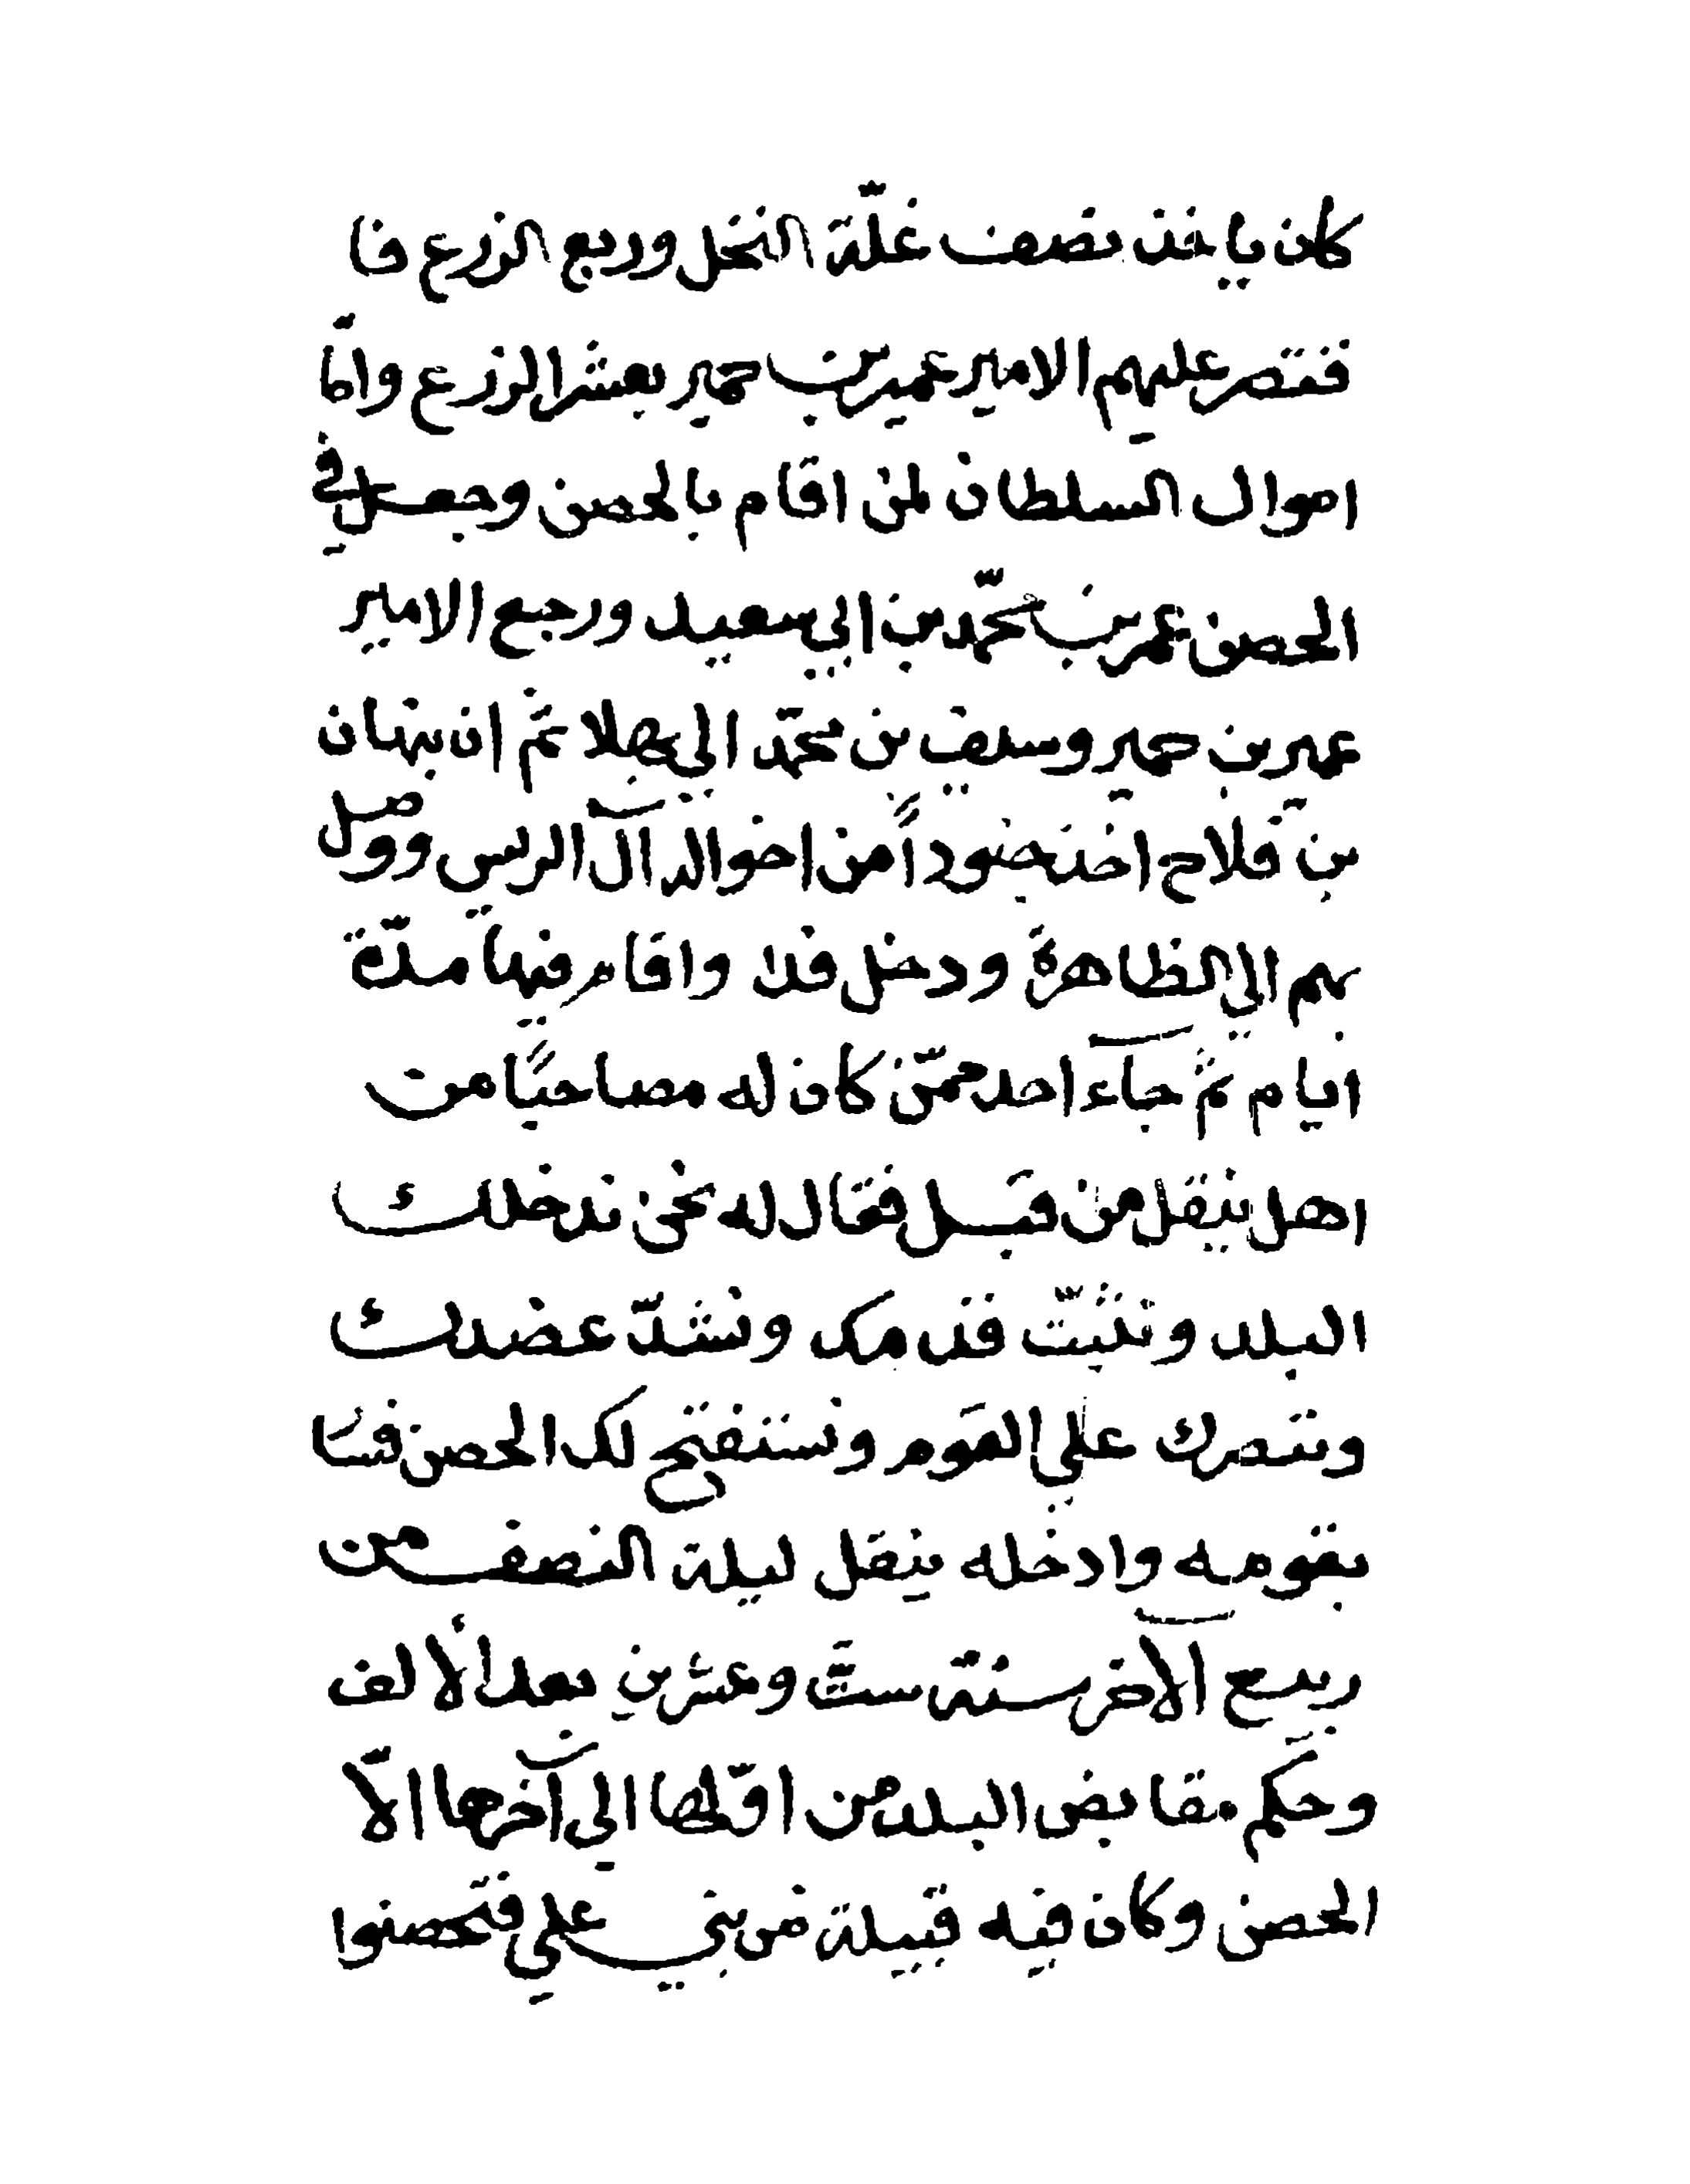 كان ياخذ نصف غلّة النخل وربع الزرع فا
فقتصر عليهم الامير عمير بن حمير بعشر الزرع وامّا
اموال السلطان لمن اقام بالحصن وجعل في
الحصن عمر بن محمّد بن ابي سعيد ورجع الامير
عمير بن حمير وسيف بن محمّد الي بهلا ثم ان نبهان
بن فلاح اخذ جنوداً من اخواله آل الريس ووصل
بهم الي الظاهرة ودخل فدا واقام فيها مدّة
ايام ثم جاء احد ممّن كان له مصاحباً من
اهل ينقل من قبل فقال له نحن ندخلك
البلد ونثبّت قدمك ونشدّ عضدك
وننصرك علي القوم ونستفتح لك الحصن فسا
بقومه وادخله ينقل ليلة النصف من
ربيع الآخر سنة ستّ وعشرين بعد الألف
وحكم مقابض البلد من اوّلها الي آخرها الاّ
الحصن وكان فيه قبيلة من بني علي فتحصنوا